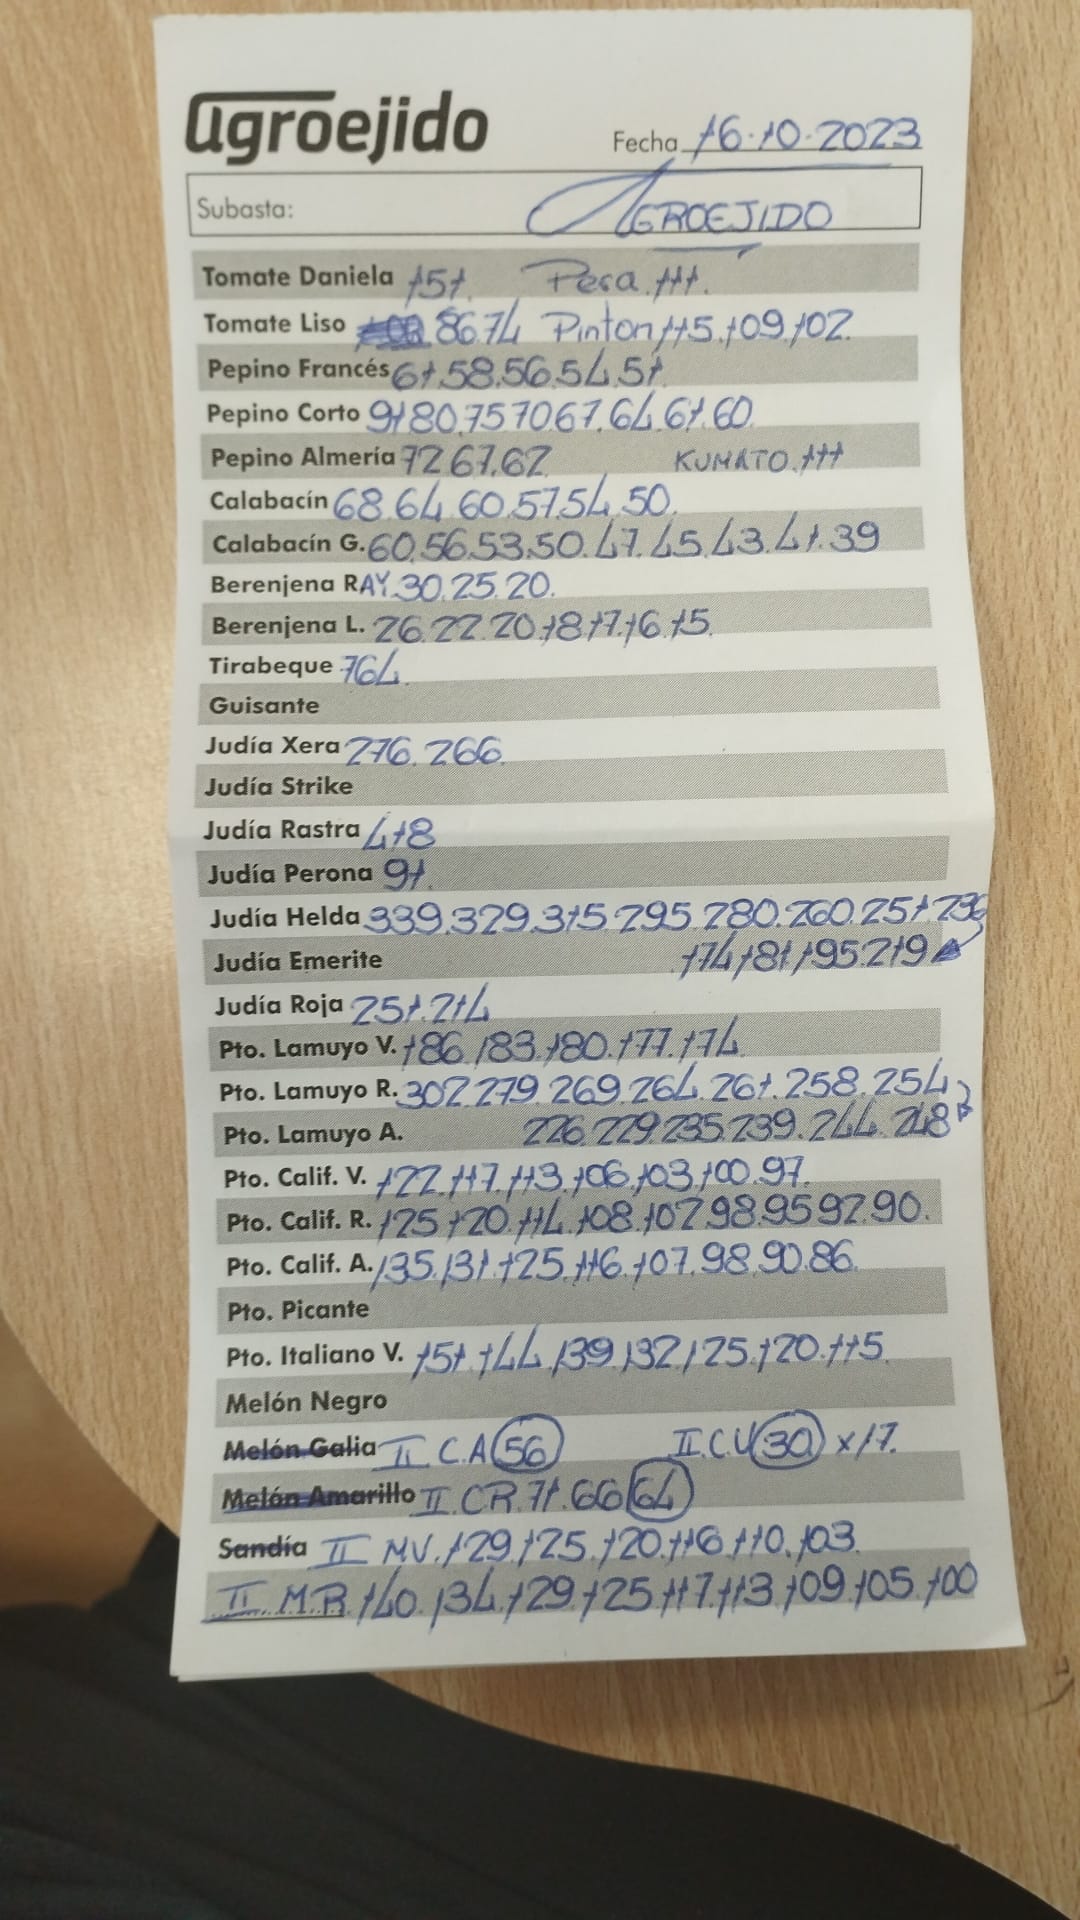 agroejido
Fecha 16.10.2023
Subasta: AGROEJIDO
Tomate Daniela 151. Pera.111.
Tomate Liso 86.74 Pinton 115.109.102.
Pepino Francés 61.58.56.54.51
Pepino Corto 91.80.75.70.67.64.61.60.
Pepino Almería 72.67.62 KUMATO.111
Calabacín 68.64.60.57.54.50.
Calabacín G. 60.56.53.50.47.45.43.41.39
Berenjena RAY.30.25.20.
Berenjena L. 26.22.20.18.17.16.15.
Tirabeque 764.
Guisante
Judía Xera 276.266.
Judía Strike
Judía Rastra 418
Judía Perona 91.
Judía Helda 339.329.315.295.280.260.251.236
Judía Emerite 174.181.195.219
Judía Roja 251.214
Pto. Lamuyo V. 186.183.180.177.174.
Pto. Lamuyo R. 302.279.269.264.261.258.254
Pto. Lamuyo A. 226.229.235.239.244.248
Pto. Calif. V. 122.117.113.106.103.100.97.
Pto. Calif. R. 125.120.114.108.102.98.95.92.90.
Pto. Calif. A. 135.131.125.116.107.98.90.86.
Pto. Picante
Pto. Italiano V. 151.144.139.132.125.120.115.
Melón Negro
Melón Galia II C.A 56 II.C.V 30 x17.
Melón Amarillo II CR.71.66 64
Sandía II MV.129.125.120.116.110.103.
II.M.R.140.134.129.125.117.113.109.105.100